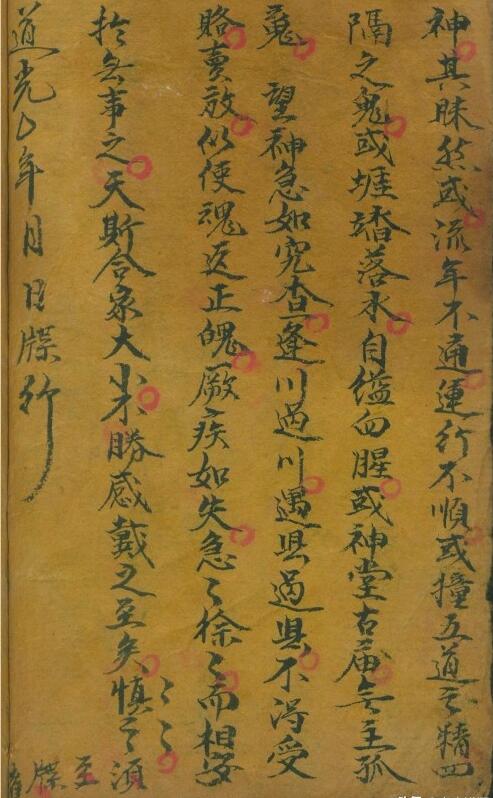 神其昧然或流年不通運行不順或撞五道之精四
隔之鬼或落水自縊血腥或神堂古庙無主孤
望神急如究查逢川過川遇县過县不淂受
賂賣放似使魂返正魄厥疾如失急〻徐〻而相安
扵無事之天斯合家大小不勝感戴之至矣慎之〻〻須
至牒者
道光年月日牒行